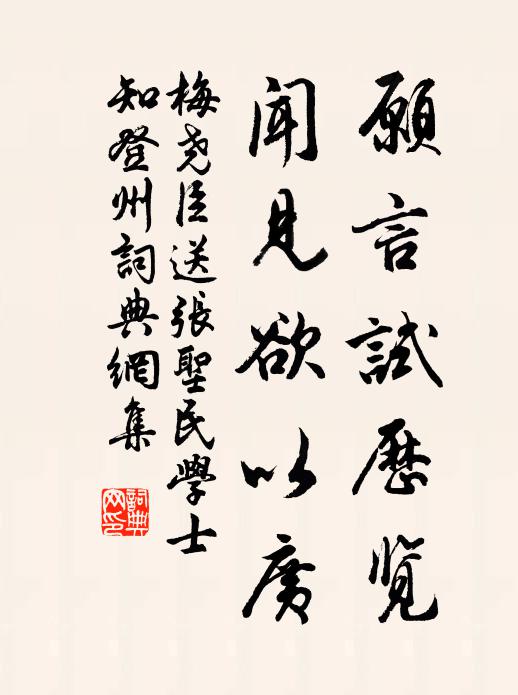 願言試歷覽
聞見欲以廣
梅堯臣送張聖民學士
知登州詞典網集
詞典网印